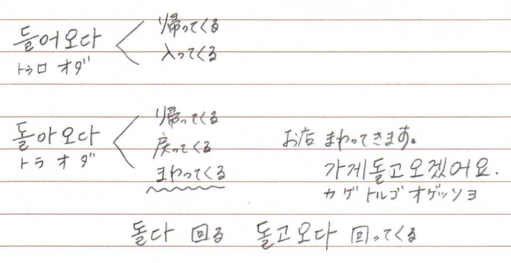 들어오다
トゥロ オダ
帰ってくる
入ってくる
돌아오다
トラ オダ
帰ってくる
戻ってくる
まわってくる
お店 まわってきます。
가게돌고오겠어요.
カゲ トルゴ オゲッソヨ
돌다 回る 돌고오다 回ってくる